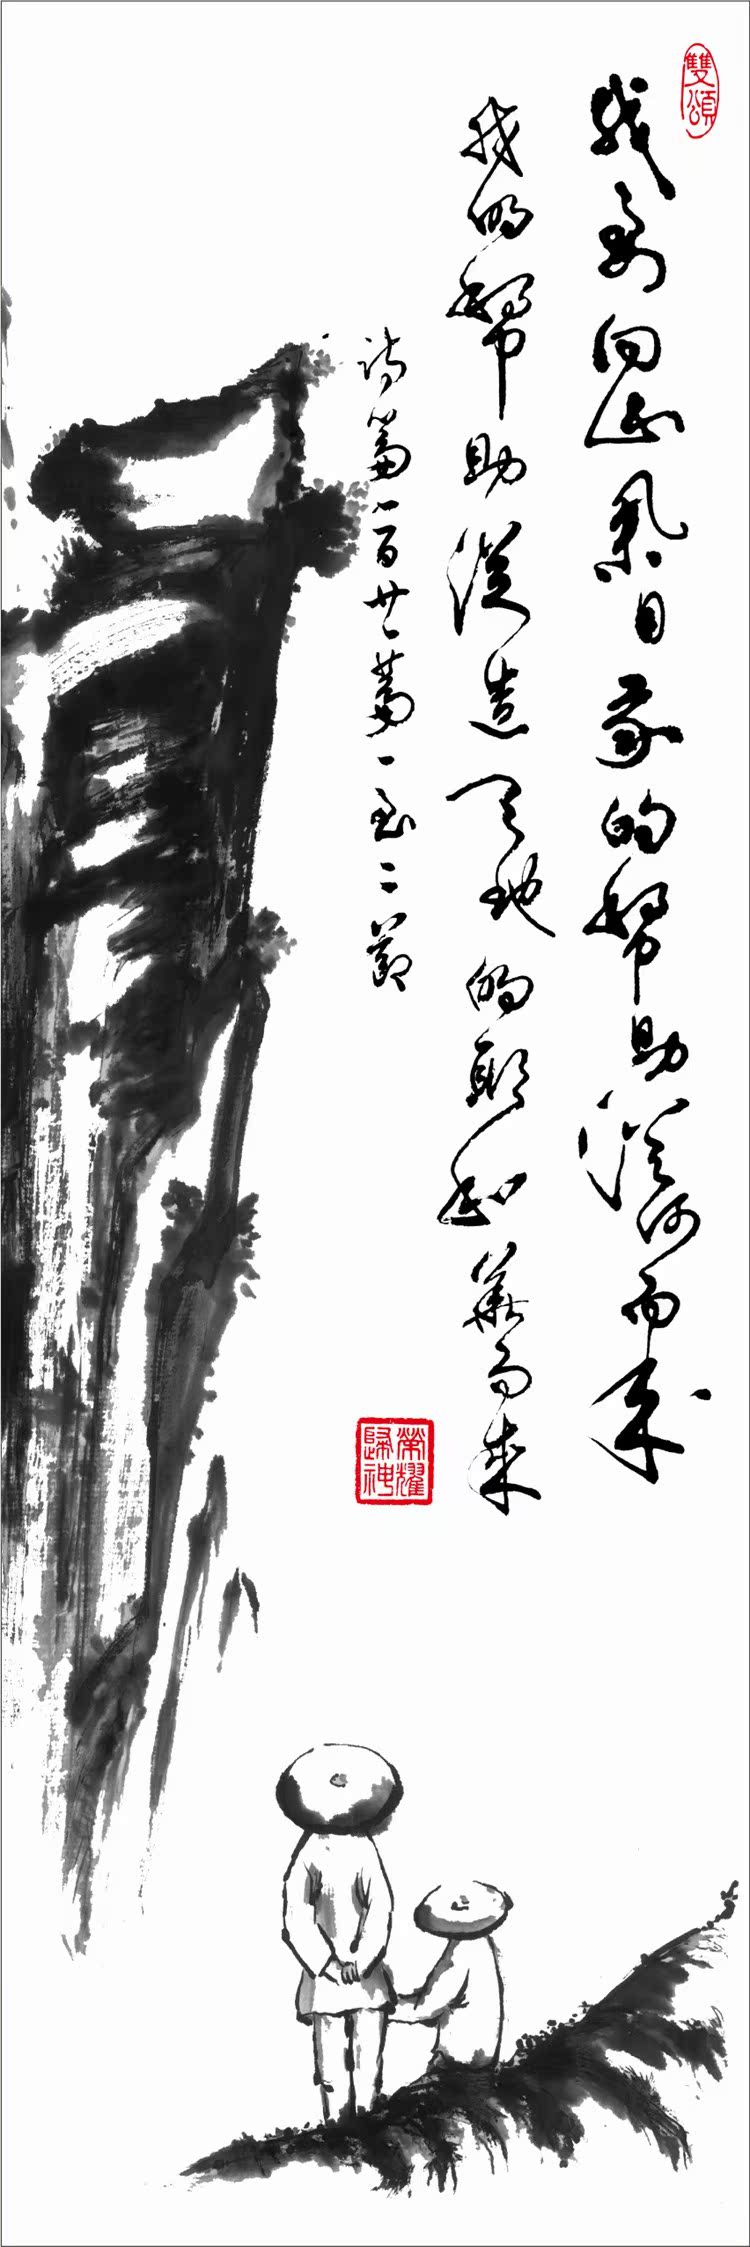 雙頌
我要向山舉目我的幫助從何而來
我的幫助從造天地的耶和華而來
詩篇一百廿一篇一至二節
榮耀
歸神